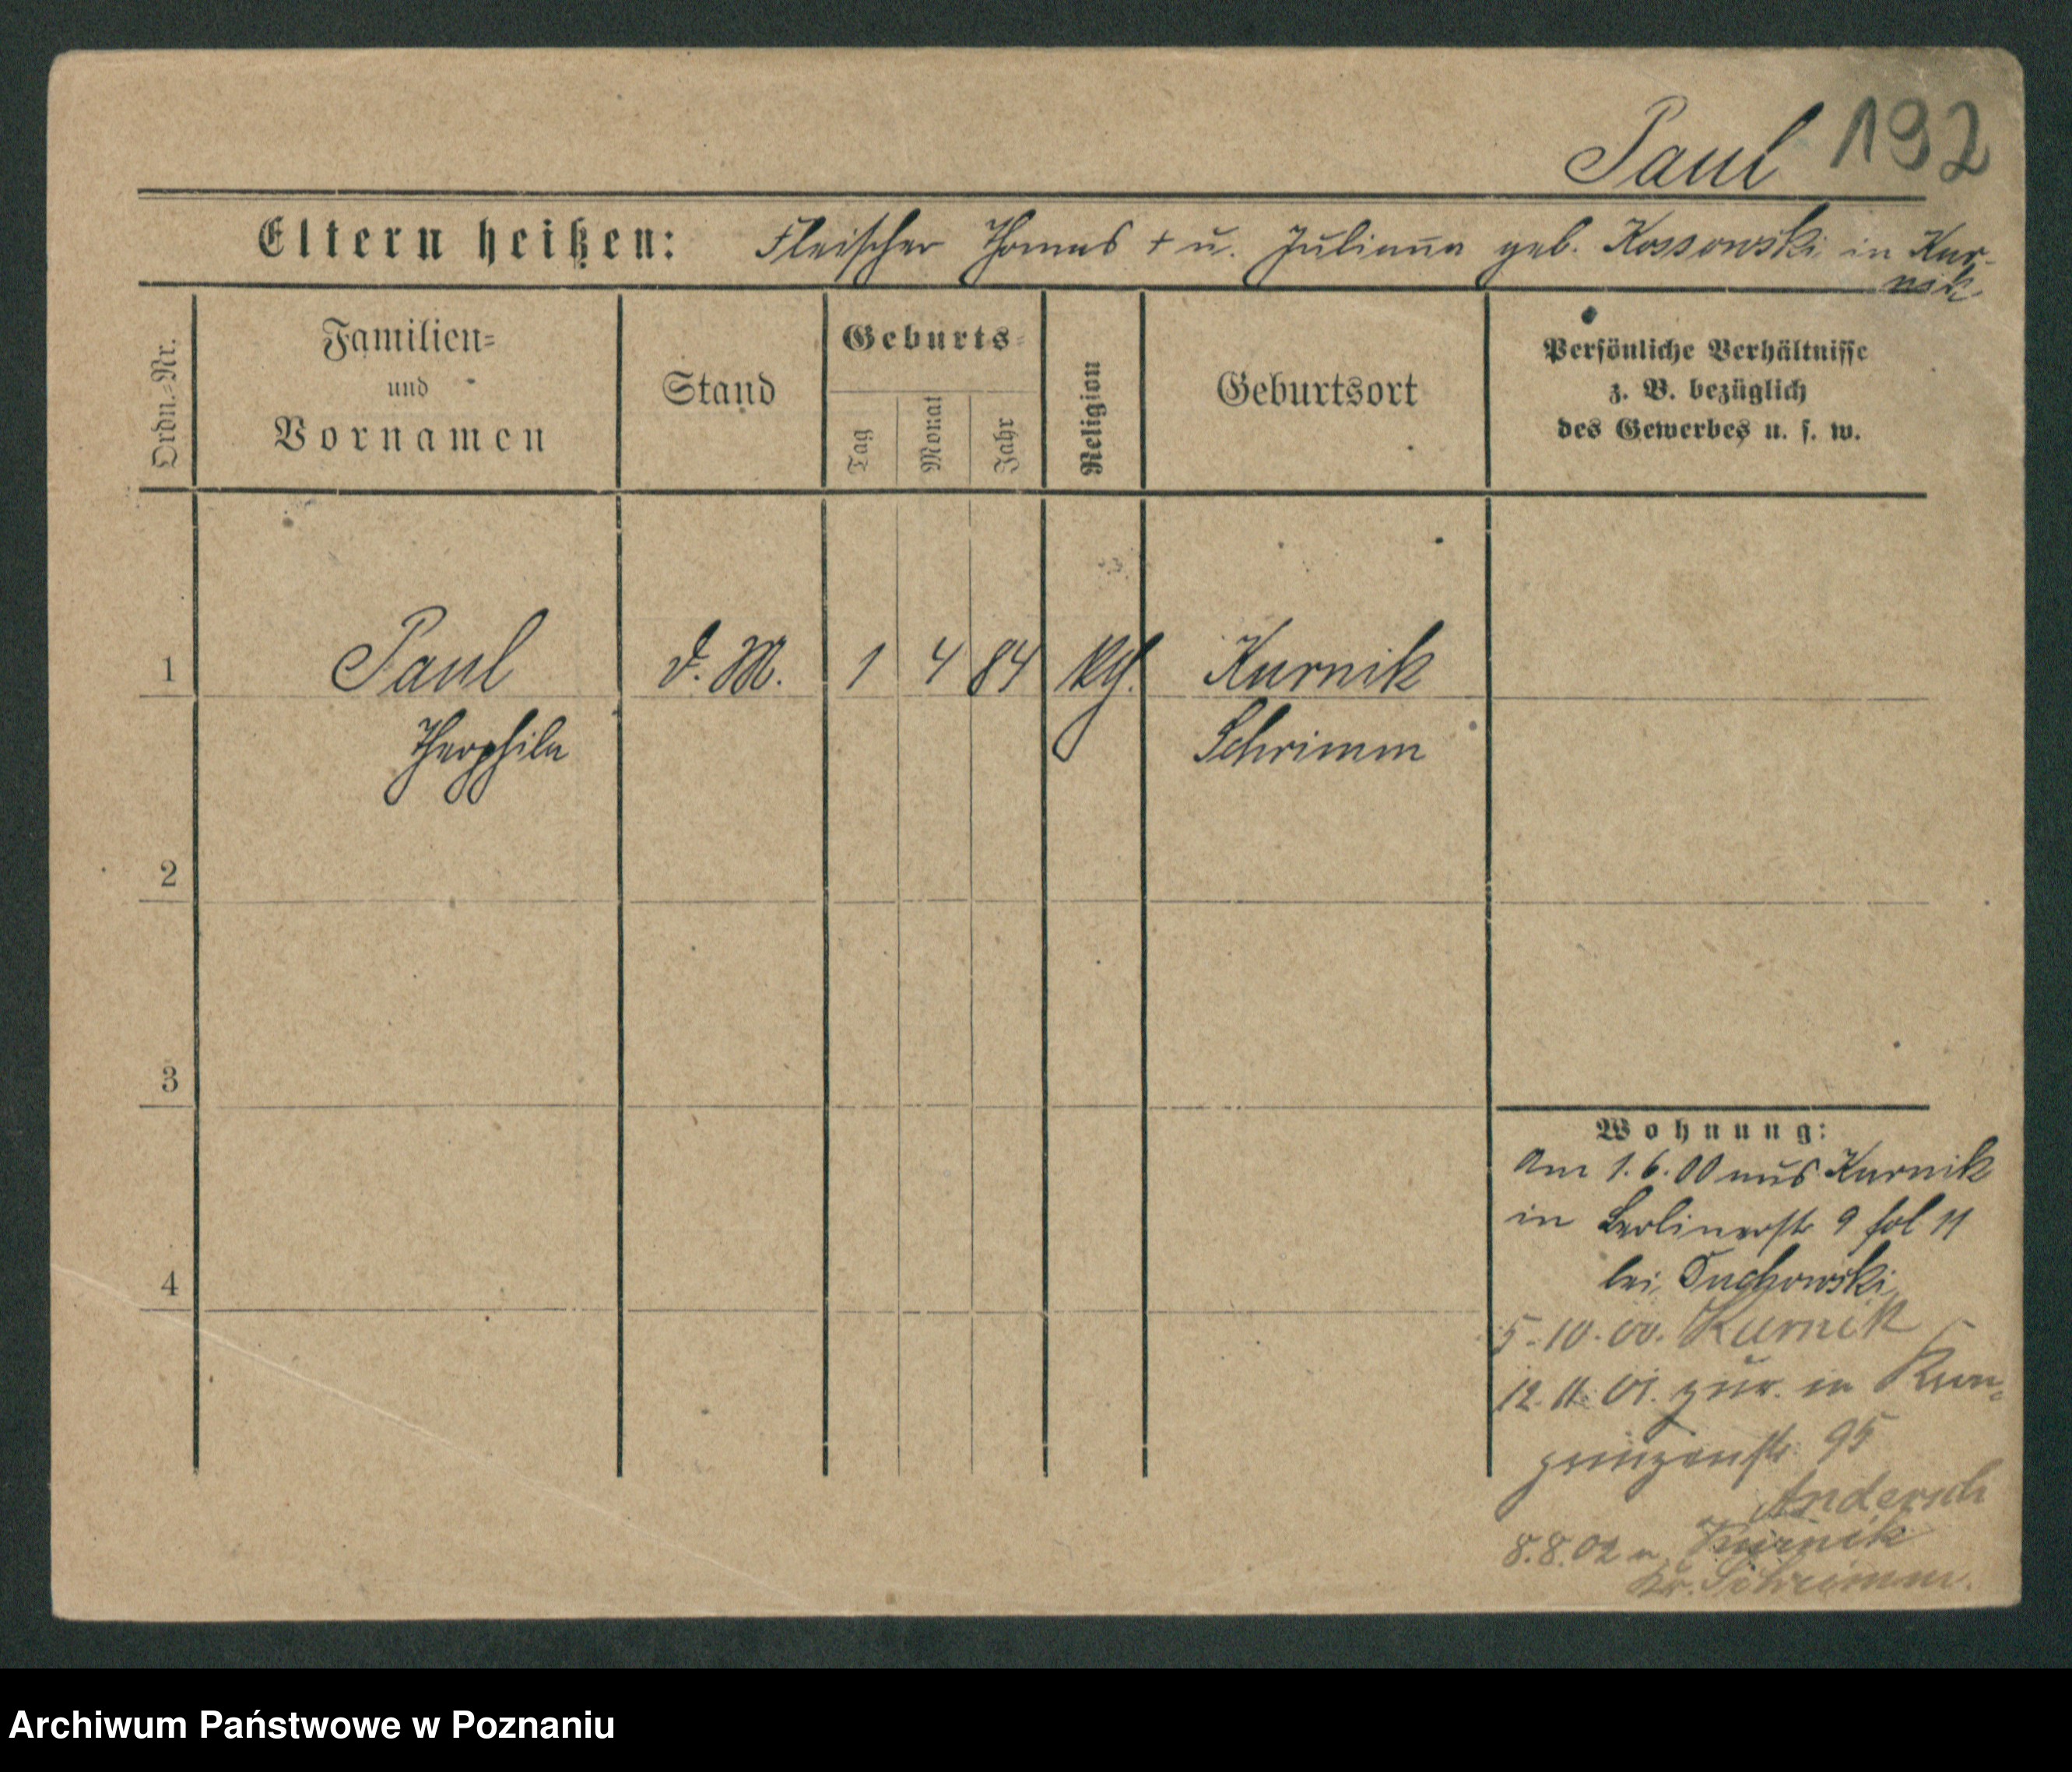 Paul 192
Eltern heißen: Fleischer Thomas + u. Juliana geb. Kossowski in Kur-
nik
Ordn.-Nr.
Familien-
und
Vornamen
Stand
Geburts-
Tag
Monat
Jahr
Religion
Geburtsort
Persönliche Verhältnisse
z. B. bezüglich
des Gewerbes u. s. w.
1 Paul d. M. 1 4 84 kth. Kurnik
Theophila Schrimm
2
3
4
Wohnung:
Am 1.6.00 aus Kurnik
in Berlinerstr 9 fol 11
bei Suchowski
5.10.00. Kurnik
12.11.01. zur. in Kron-
prinzenstr. 95
Andersch
8.8.02 n. Kurnik
Kr. Schrimm.
Archiwum Państwowe w Poznaniu